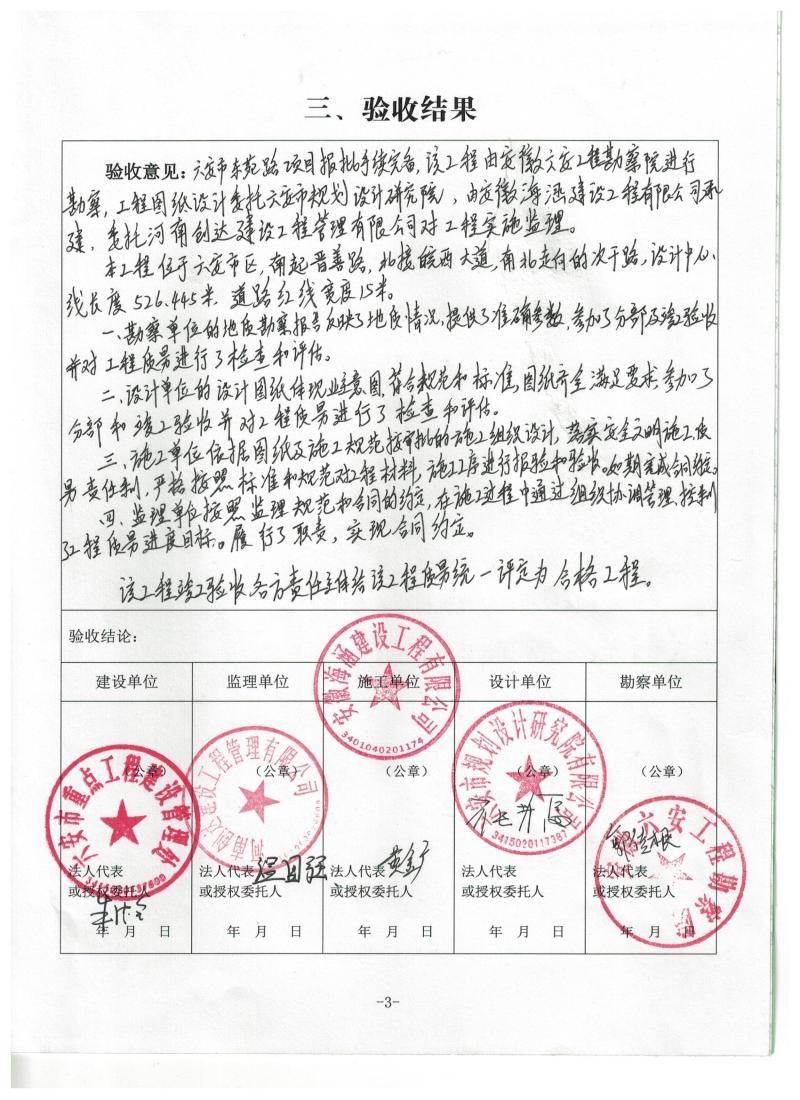 三、验收结果
验收意见：六安市东苑路项目报批手续完备，该工程由安徽六安工程勘察院进行
勘察，工程图纸设计委托六安市规划设计研究院，由安徽海涵建设工程有限公司承
建，委托河南创达建设工程管理有限公司对工程实施监理。
本工程位于六安市区，南起晋善路，北接皖西大道，南北走向的次干路，设计中心
线长度526.445米，道路红线宽度15米。
一、勘察单位的地质勘察报告反映了地质情况，提供了准确参数，参加了分部及竣工验收
并对工程质量进行了检查和评估。
二、设计单位的设计图纸体现业主意图，符合规范和标准，图纸齐全满足要求，参加了
分部和竣工验收并对工程质量进行了检查和评估。
三、施工单位依据图纸及施工规范按审批的施工组织设计，落实安全文明施工质
量责任制，严格按照标准和规范对工程材料，施工工序进行报验和验收。如期完成合同约定。
四、监理单位按照监理规范和合同的约定，在施工过程中通过组织协调管理，控制
了工程质量进度目标。履行了职责，实现合同约定。
该工程竣工验收各方责任主体给该工程质量统一评定为合格工程。
验收结论：
建设单位 监理单位 施工单位 设计单位 勘察单位
安徽海涵建设工程有限公司
3401040201174
六安市重点工程建设管理处
河南创达建设工程管理有限公司
六安市规划设计研究院有限公司
3415020117387
六安工程勘察院
（公章） （公章） （公章） （公章） （公章）
法人代表 法人代表 法人代表 法人代表 法人代表
或授权委托人 或授权委托人 或授权委托人 或授权委托人 或授权委托人
年 月 日 年 月 日 年 月 日 年 月 日 年 月 日
-3-